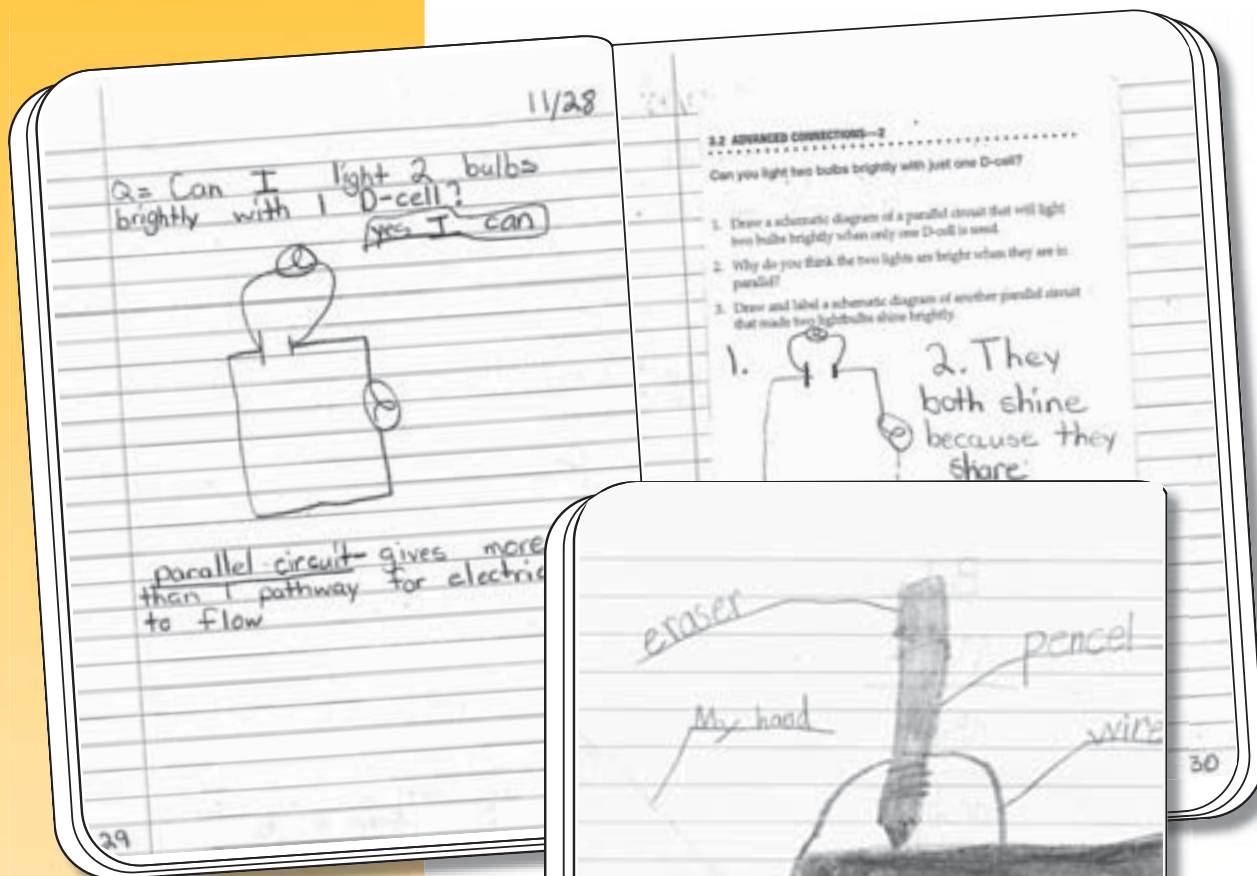 11/28
Q= Can I light 2 bulbs
brightly with 1 D-cell?
yes I can
parallel circuit- gives more
than 1 pathway for electric
to flow
29
3.2 ADVANCED CONNECTIONS—2
Can you light two bulbs brightly with just one D-cell?
1. Draw a schematic diagram of a parallel circuit that will light
two bulbs brightly when only one D-cell is used.
2. Why do you think the two lights are bright when they are in
parallel?
3. Draw and label a schematic diagram of another parallel circuit
that made two lightbulbs shine brightly.
1.
2. They
both shine
because they
share
30
eraser
pencel
My hand
wire